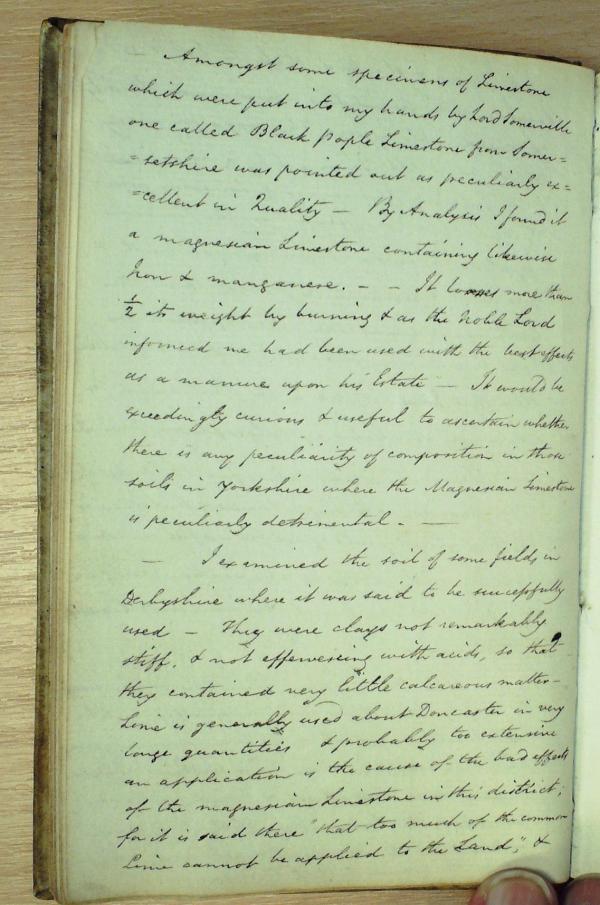 Amongst some specimens of Limestone
which were put into my hands by Lord Somerville
one called Black Pople Limestone from Somer=
=setshire was pointed out as peculiarly ex=
=cellent in Quality — By Analysis I found it
a magnesian Limestone containing likewise
Iron & manganese. — — It loses more than
½ its weight by burning & as the Noble Lord
informed me had been used with the best effects
as a manure upon his Estate — It would be
exceedingly curious & useful to ascertain whether
there is any peculiarity of composition in those
soils in Yorkshire where the Magnesian Limestone
is peculiarly detrimental. —
— I examined the soil of some fields in
Derbyshire where it was said to be successfully
used — they were clays not remarkably
stiff, & not effervescing with acids, so that
they contained very little calcareous matter—
Lime is generally used about Doncaster in very
large quantities & probably too extensive
an application is the cause of the bad effects
of the magnesian Limestone in this district;
for it is said there "that too much of the common
Lime cannot be applied to the Land", &